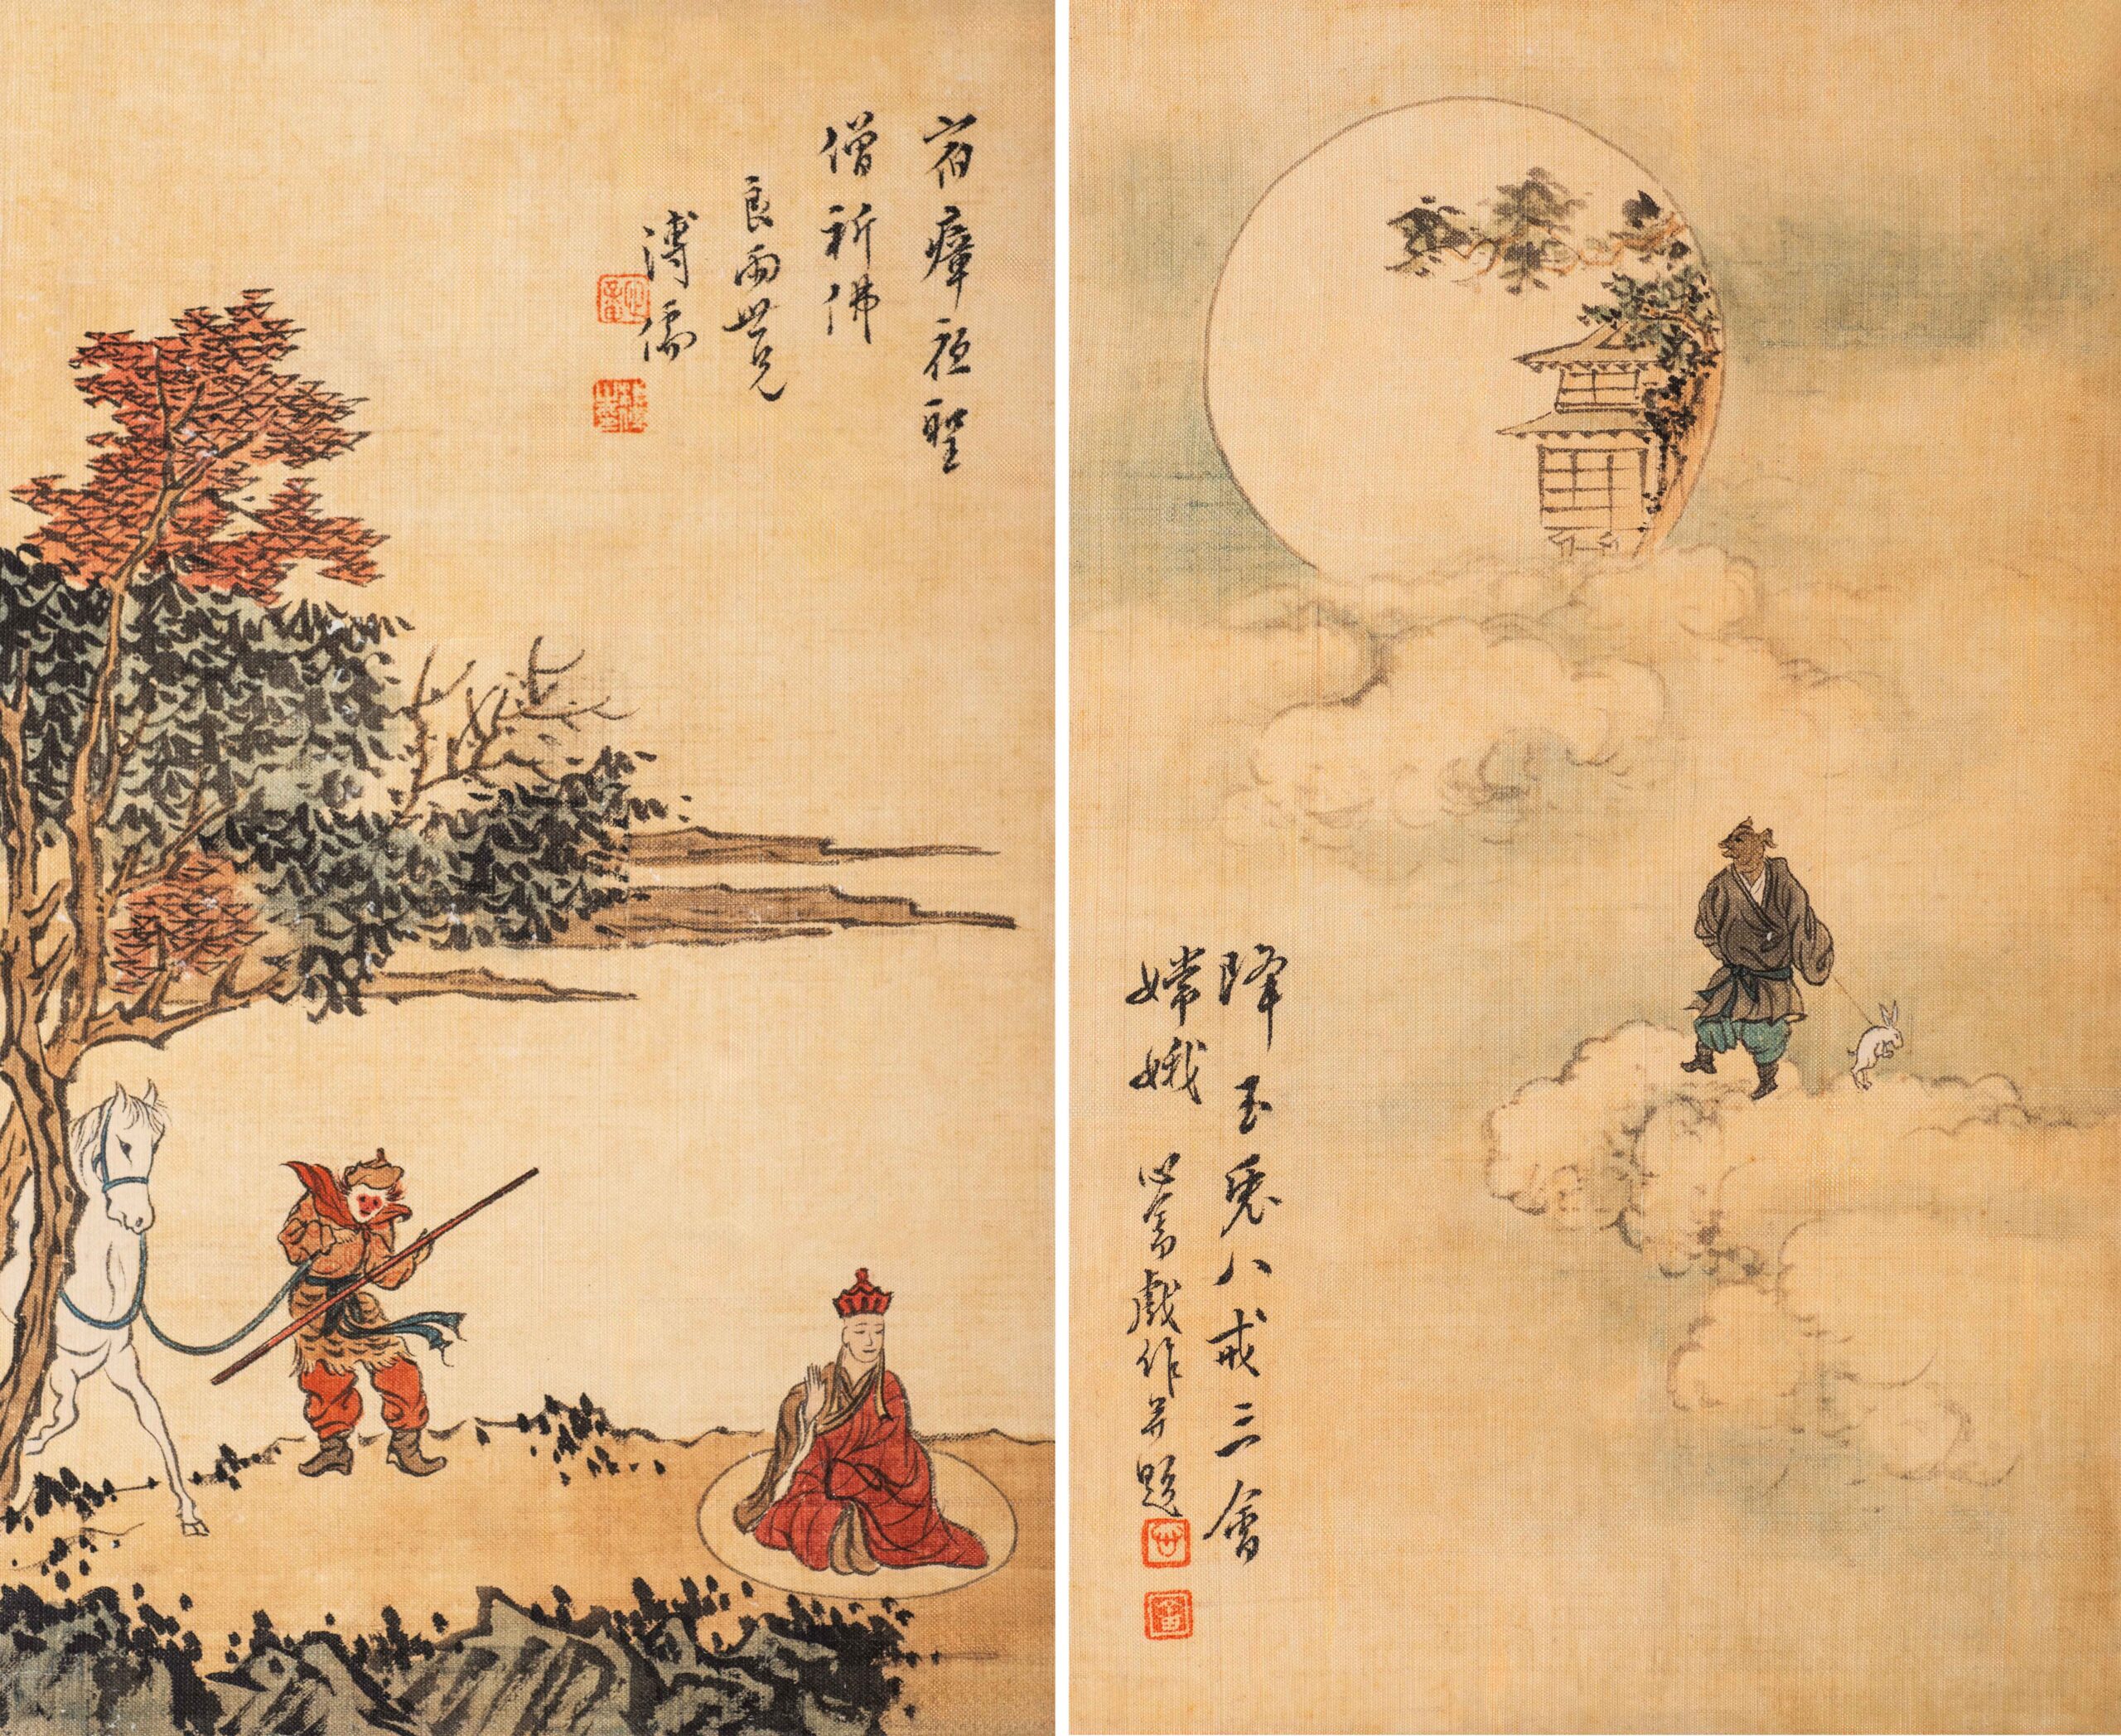 宿瘴疟聖
僧祈佛
良雨世兄
溥儒
降玉兎八戒三會
嫦娥 心畬戲作並題